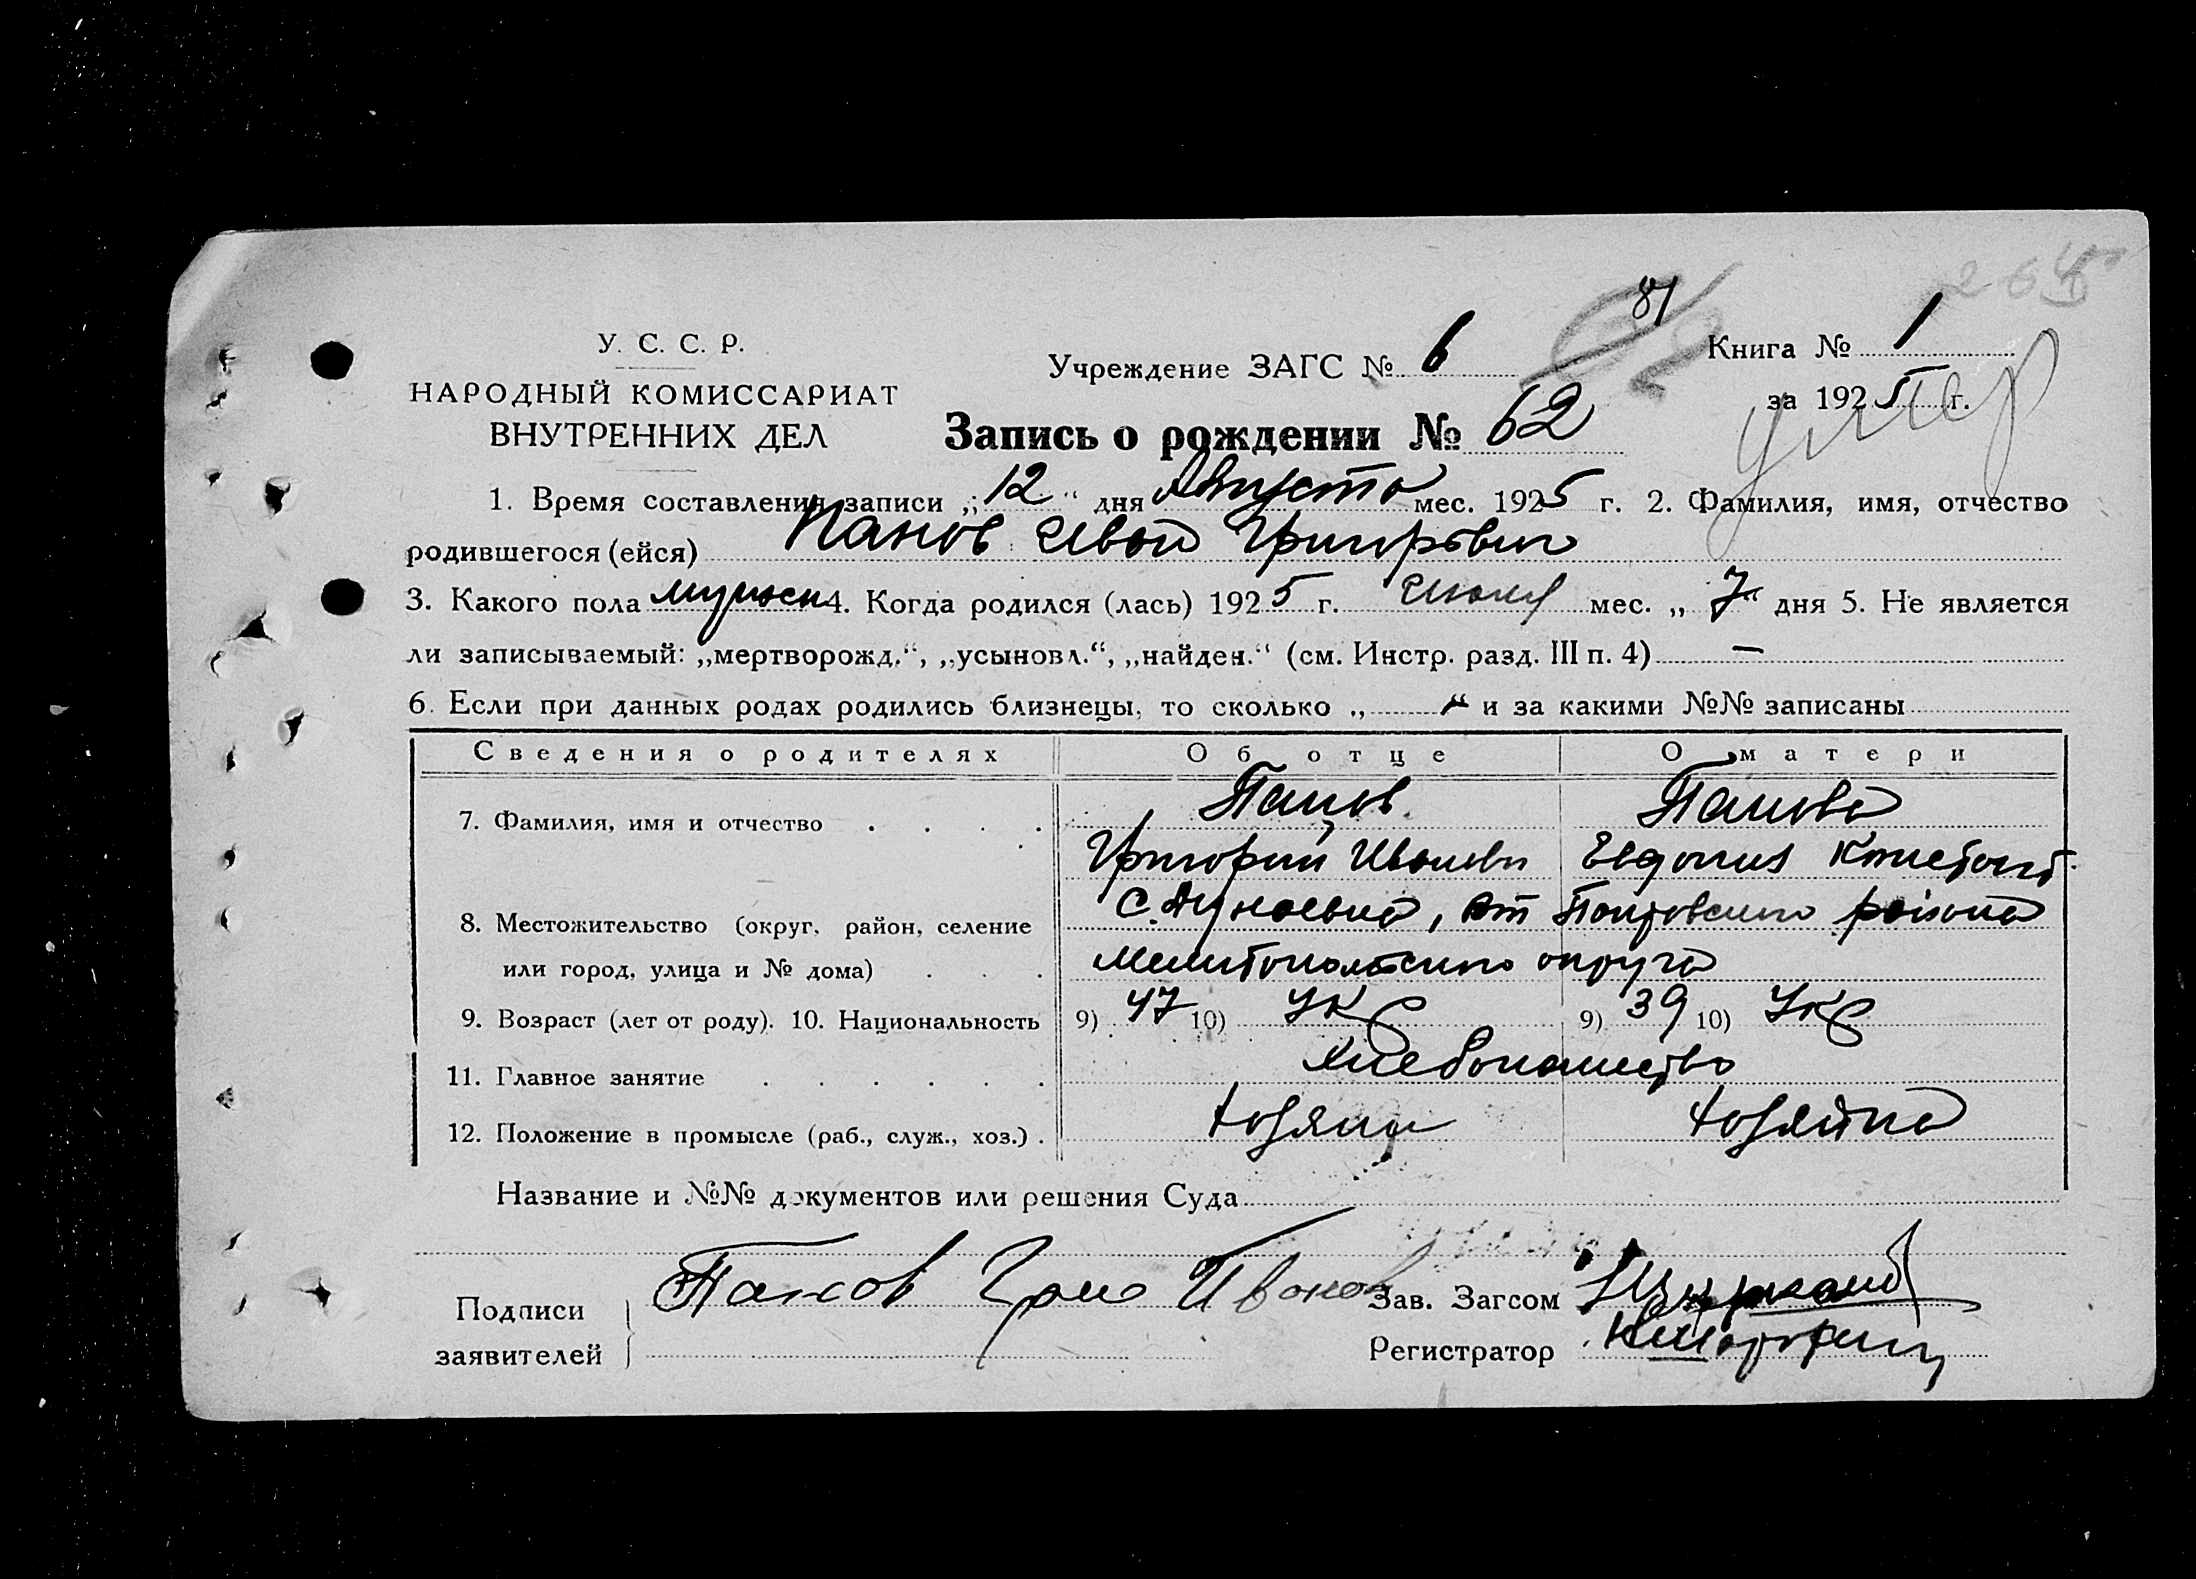 265
81
У. С. С. Р.
НАРОДНЫЙ КОМИССАРИАТ
ВНУТРЕННИХ ДЕЛ
Учреждение ЗАГС № 6
Книга № 1
за 1925 г.
умер
Запись о рождении № 62
1. Время составления записи „12“ дня Августа мес. 1925 г. 2. Фамилия, имя, отчество
родившегося (ейся) Панов Иван Григорьевич
3. Какого пола мужск 4. Когда родился (лась) 1925 г. Июля мес. „7“ дня 5. Не является
ли записываемый: „мертворожд.“, „усыновл.“, „найден.“ (см. Инстр. разд. III п. 4) —
6. Если при данных родах родились близнецы, то сколько „ “ и за какими №№ записаны
Сведения о родителях Об отце О матери
7. Фамилия, имя и отчество . . . . Панов Панова
Григорий Иванов Евдокия Констант
8. Местожительство (округ, район, селение С. , Покровского района
или город, улица и № дома) . . . Мелитопольского округа
9. Возраст (лет от роду). 10. Национальность 9) 47 10) Укр 9) 39 10) Укр
11. Главное занятие . . . . . . хлебопашество
12. Положение в промысле (раб., служ., хоз.) . хозяин хозяйка
Название и №№ документов или решения Суда
Подписи
заявителей
Панов Григ Иванов
Зав. Загсом
Регистратор